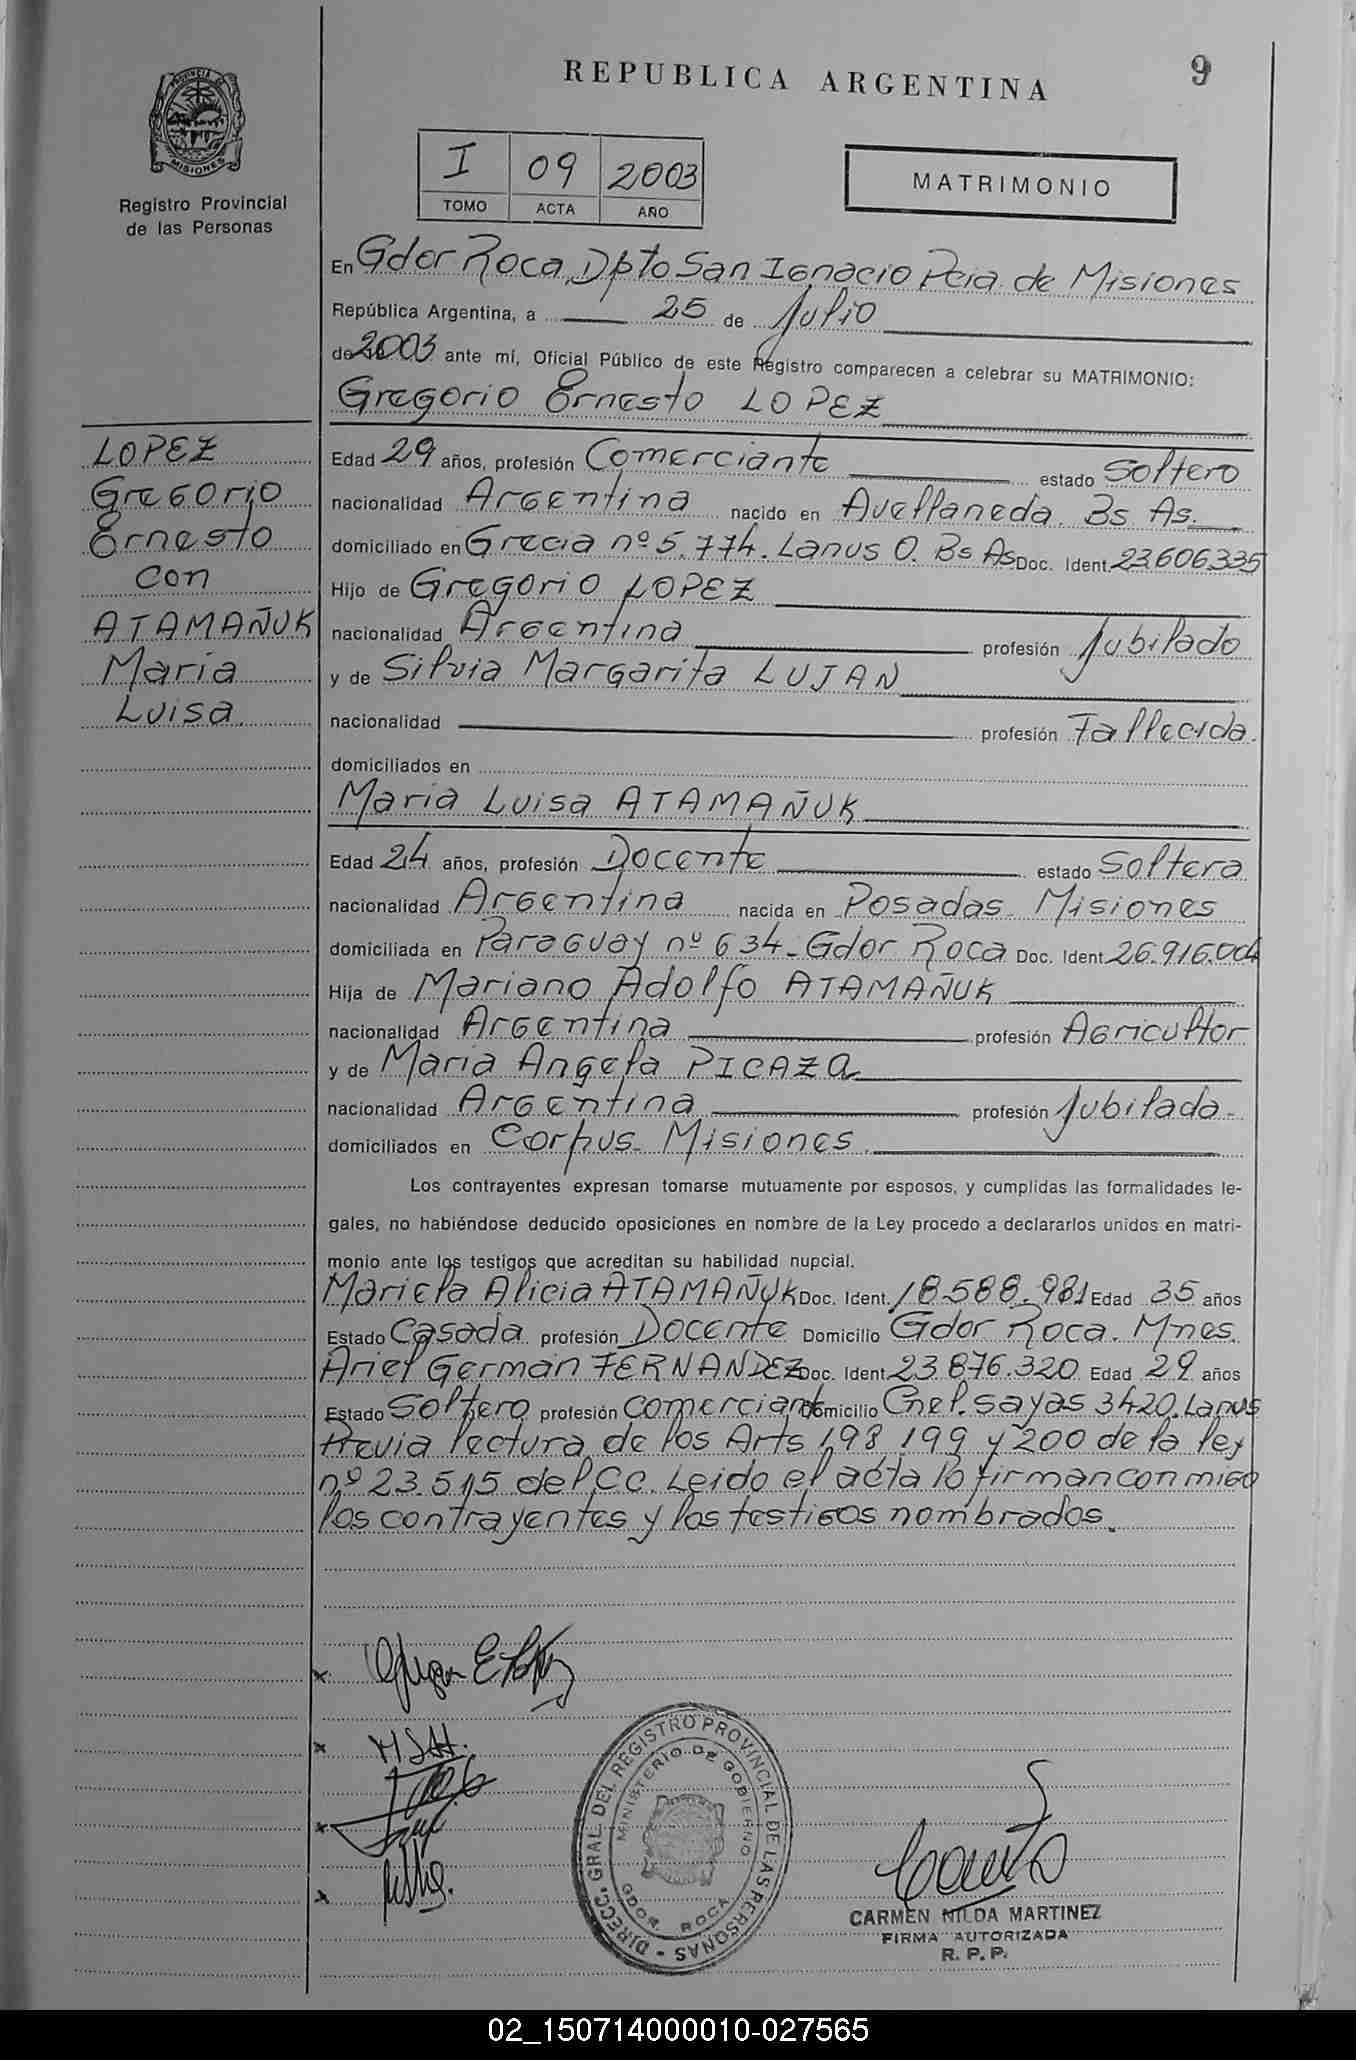 REPUBLICA ARGENTINA
9
PROVINCIA DE
MISIONES
Registro Provincial
de las Personas
I 09 2003
TOMO ACTA AÑO
MATRIMONIO
En Gdor Roca, Dpto San Ignacio Pcia. de Misiones
República Argentina, a 25 de Julio
de 2003 ante mí, Oficial Público de este Registro comparecen a celebrar su MATRIMONIO:
Gregorio Ernesto LOPEZ
LOPEZ
Gregorio
Ernesto
con
ATAMAÑUK
Maria
Luisa
Edad 29 años, profesión Comerciante estado Soltero
nacionalidad Argentina nacido en Avellaneda. Bs As.
domiciliado en Grecia nº 5.774. Lanus O. Bs As Doc. Ident. 23.606.335
Hijo de Gregorio LOPEZ
nacionalidad Argentina profesión Jubilado
y de Silvia Margarita LUJAN
nacionalidad profesión Fallecida.
domiciliados en
Maria Luisa ATAMAÑUK
Edad 24 años, profesión Docente estado Soltera
nacionalidad Argentina nacida en Posadas Misiones
domiciliada en Paraguay nº 634 - Gdor Roca Doc. Ident. 26.916.004
Hija de Mariano Adolfo ATAMAÑUK
nacionalidad Argentina profesión Agricultor
y de Maria Angela PICAZA
nacionalidad Argentina profesión Jubilada.
domiciliados en Corpus. Misiones.
Los contrayentes expresan tomarse mutuamente por esposos, y cumplidas las formalidades le-
gales, no habiéndose deducido oposiciones en nombre de la Ley procedo a declararlos unidos en matri-
monio ante los testigos que acreditan su habilidad nupcial.
Mariela Alicia ATAMAÑUK Doc. Ident. 18.588.981 Edad 35 años
Estado Casada profesión Docente Domicilio Gdor Roca. Mnes.
Ariel German FERNANDEZ Doc. Ident. 23.876.320 Edad 29 años
Estado Soltero profesión comerciante Domicilio Cnel. Sayas 3420. Lanus
Previa lectura de los Arts 198 199 y 200 de la ley
nº 23.515 del CC. Leido el acta lo firman con migo
los contrayentes y los testigos nombrados.
DIRECC. GRAL. DEL REGISTRO PROVINCIAL DE LAS PERSONAS
MINISTERIO DE GOBIERNO
GDOR. ROCA
CARMEN NILDA MARTINEZ
FIRMA AUTORIZADA
R. P. P.
02_150714000010-027565